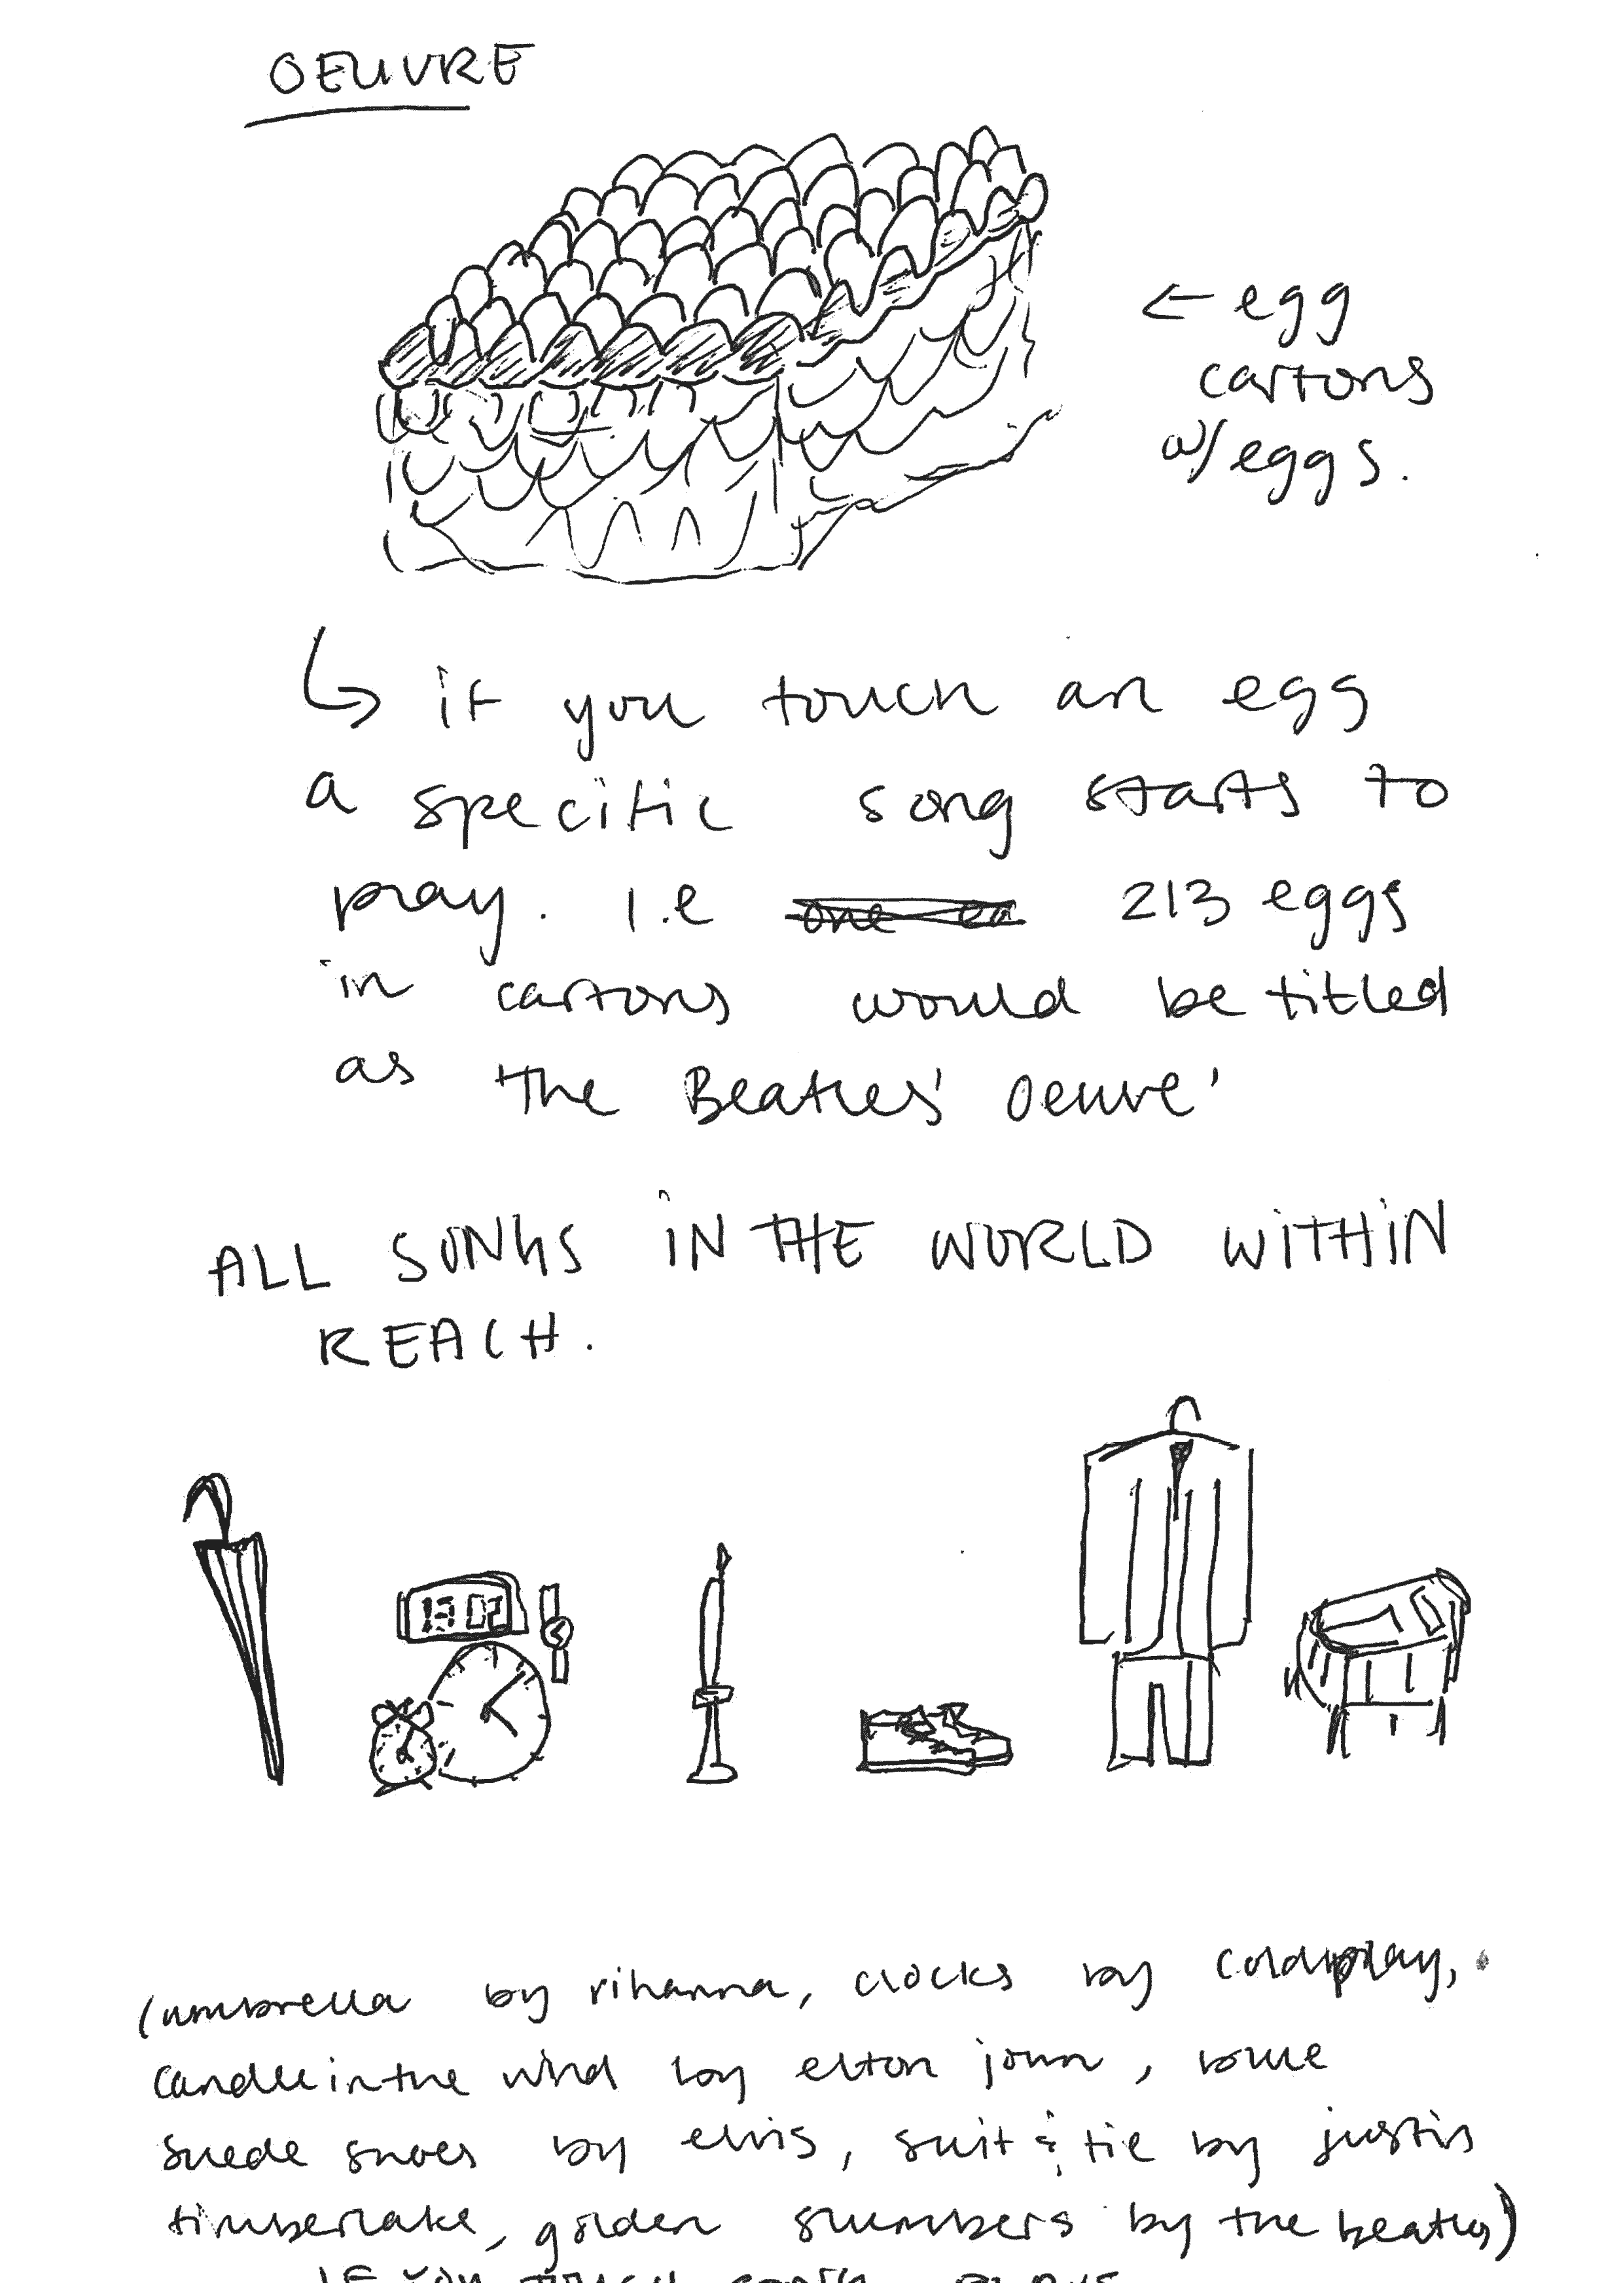 OEUVRE
← egg
cartons
w/ eggs.
↳ if you touch an egg
a specific song starts to
play. i.e 213 eggs
in cartons would be titled
as 'The Beatles' Oeuvre'
ALL SONGS IN THE WORLD WITHIN
REACH.
13 02
(umbrella by rihanna, clocks by coldplay,
candle in the wind by elton john, blue
suede shoes by elvis, suit & tie by justin
timberlake, golden slumbers by the beatles)
IF YOU TOUCH